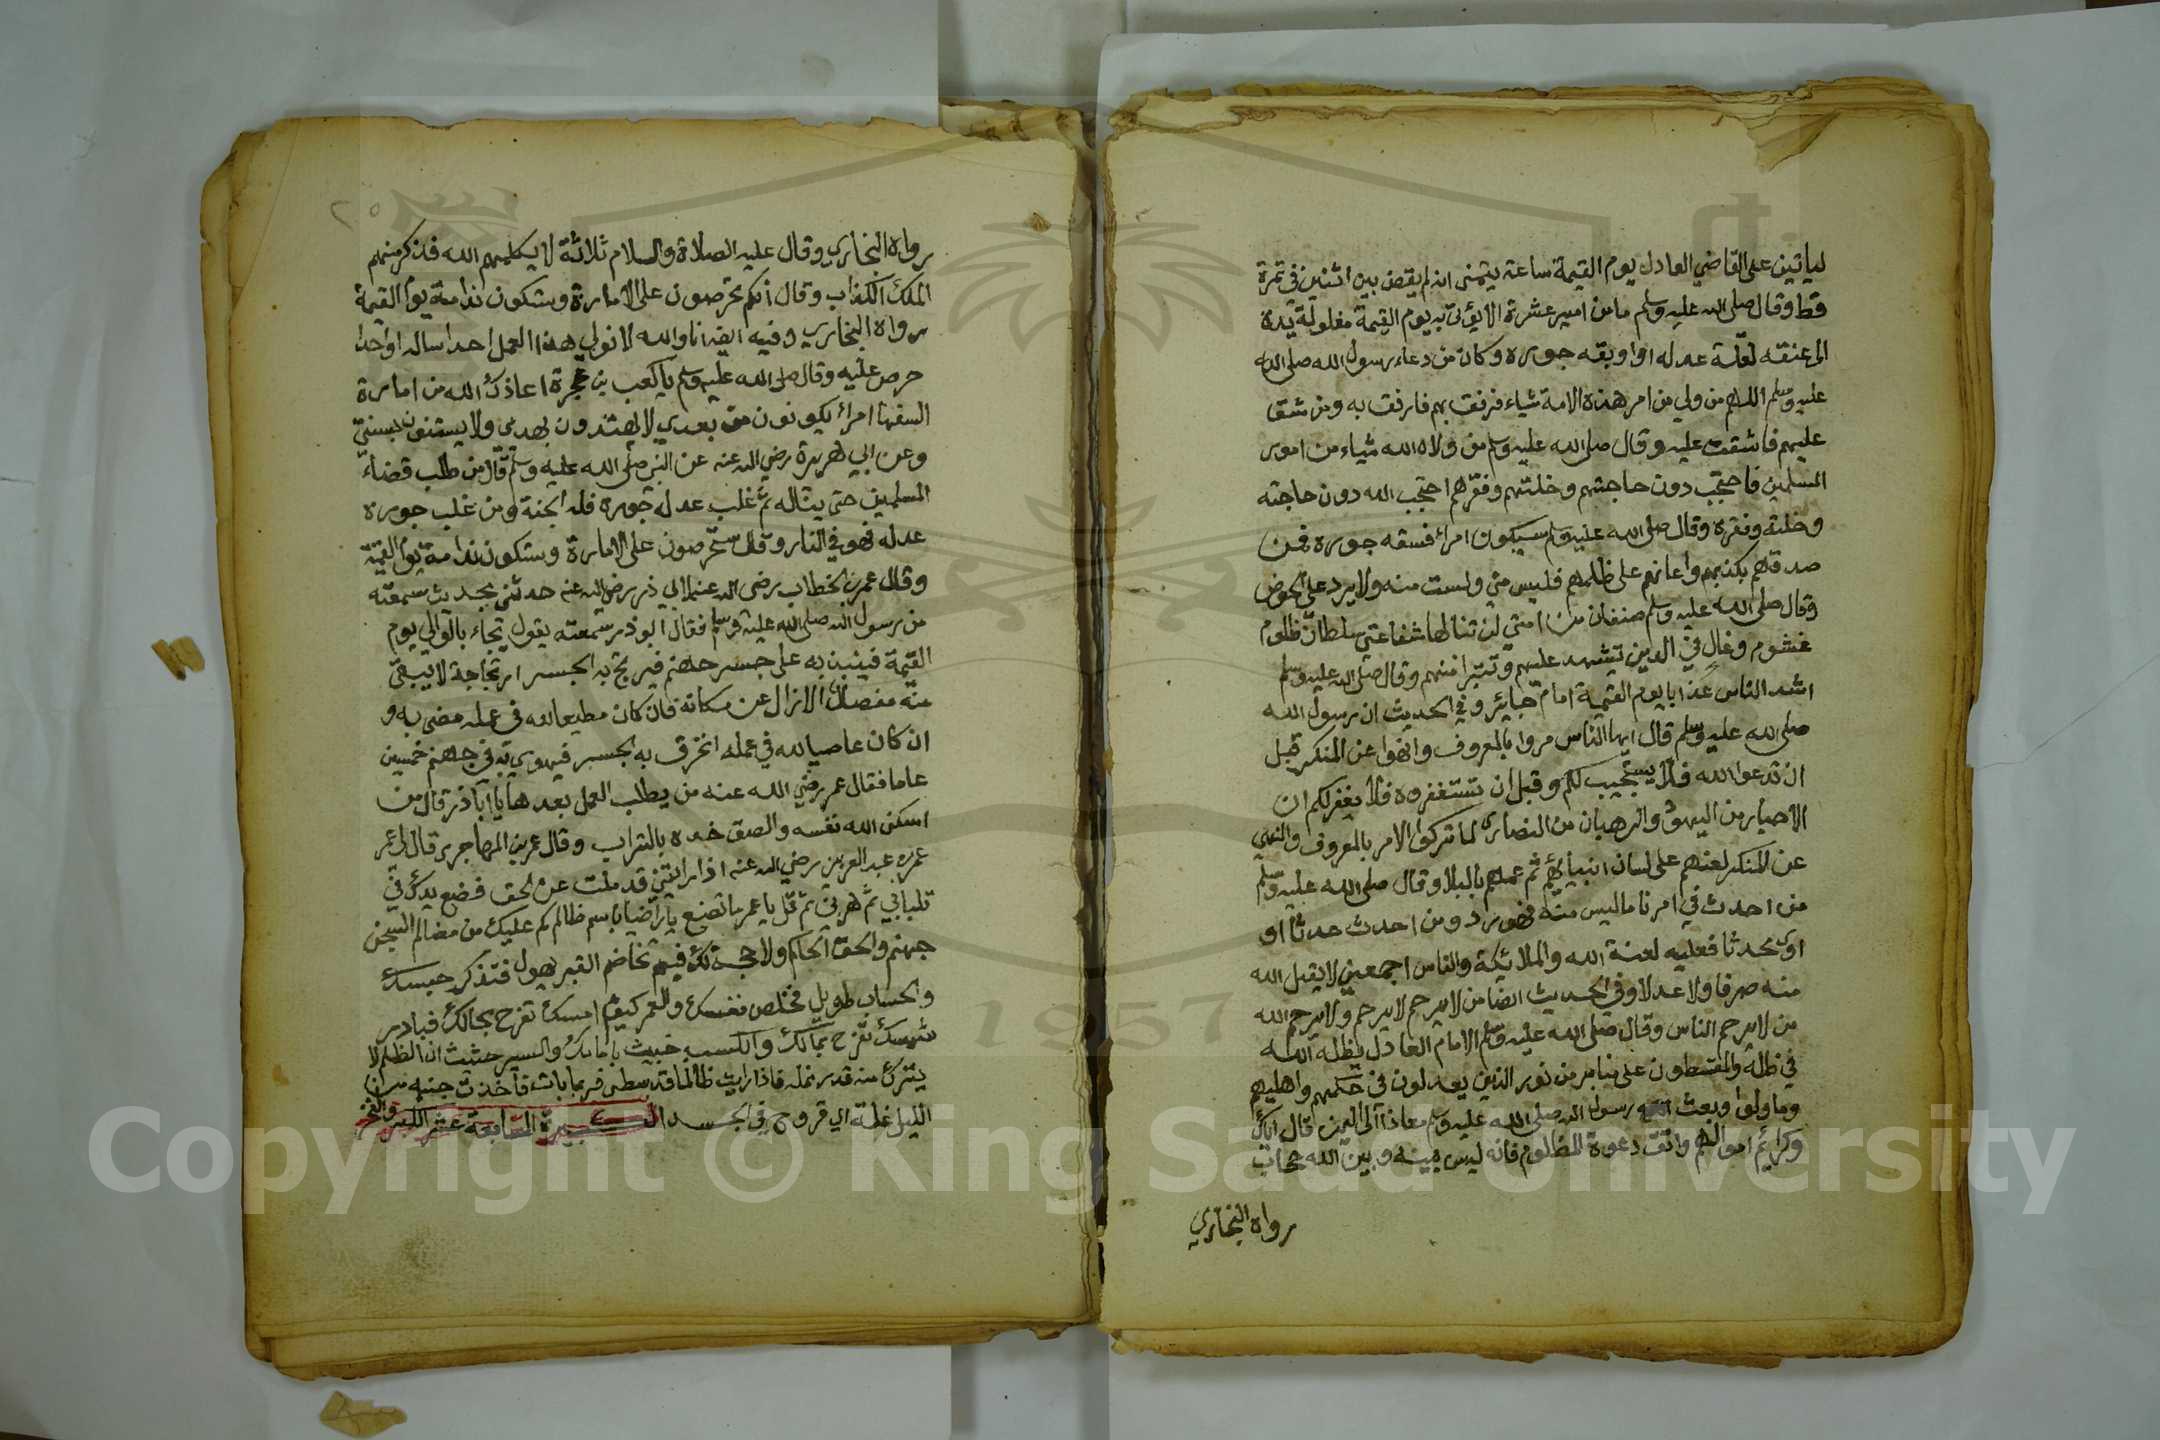 لياتين على القاضي العادل يوم القيمة ساعة يتمنى انه لم يقض بين اثنين في تمرة
قط وقال صلى الله عليه وسلم ما من امير عشرة الا يؤتى به يوم القيمة مغلولة يده
الى عنقه لعله عدله او اوبقه جوره وكان من دعاء رسول الله صلى الله
عليه وسلم اللهم من ولي من امر هذه الامة شياء فرفق بهم فارفق به ومن شق
عليهم فاشقق عليه وقال صلى الله عليه وسلم من ولاه الله شياء من امور
المسلمين فاحتجب دون حاجتهم وخلتهم وفقرهم احتجب الله دون حاجته
وخلته وفقره وقال صلى الله عليه وسلم سيكون امراء فسقه جوره فمن
صدقهم بكذبهم واعانهم على ظلمهم فليس مني ولست منه ولا يرد على الحوض
وقال صلى الله عليه وسلم صنفان من امتي لن تنالها شفاعتي سلطان ظلوم
غشوم وغال في الدين تيشهد عليهم وتتبرا منهم وقال صلى الله عليه وسلم
اشد الناس عذابا يوم القيمة امام جائر وفي الحديث ان رسول الله
صلى الله عليه وسلم قال ايها الناس مروا بالمعروف وانهوا عن المنكر قبل
ان تدعوا الله فلا يستجيب لكم وقبل ان تستغفروه فلا يغفر لكم ان
الاحبار من اليهود والرهبان من النصارى لما تركوا الامر بالمعروف والنهي
عن المنكر لعنهم على لسان انبيائهم ثم عمهم بالبلا وقال صلى الله عليه وسلم
من احدث في امرنا ما ليس منه فهو رد ومن احدث حدثا او
اوى محدثا فعليه لعنة الله والملائكة والناس اجمعين لا يقبل الله
منه صرفا ولا عدلا وفي الحديث ايضا من لا يرحم لا يرحم ولا يرحم الله
من لا يرحم الناس وقال صلى الله عليه وسلم الامام العادل يظله الله
في ظله والمقسطون على منابر من نور الذين يعدلون في حكمهم واهليهم
وما ولوا وبعث رسول الله صلى الله عليه وسلم معاذا الى اليمن قال اياك
وكرائم اموالهم واتق دعوة المظلوم فانه ليس بينه وبين الله حجاب
رواه البخاري
٢٥
رواه البخاري وقال عليه الصلاة والسلام ثلاثة لا يكلمهم الله فذكر منهم
الملك الكذاب وقال انكم تحرصون على الامارة وستكون ندامة يوم القيمة
رواه البخاري وفيه ايضا انا والله لا نولي هذا العمل احدا ساله او احدا
حرص عليه وقال صلى الله عليه وسلم يا كعب بن عجرة اعاذك الله من امارة
السفها امراء يكونون من بعدي لا يهتدون بهدي ولا يستنون بسنتي
وعن ابي هريرة رضي الله عنه عن النبي صلى الله عليه وسلم قال من طلب قضاء
المسلمين حتى يناله ثم غلب عدله جوره فله الجنة ومن غلب جوره
عدله فهو في النار وقال ستحرصون على الامارة وستكون ندامة يوم القيمة
وقال عمر بن الخطاب رضي الله عنه لابي ذر رضي الله عنه حدثني بحديث سمعته
من رسول الله صلى الله عليه وسلم فقال ابو ذر سمعته يقول يجاء بالوالي يوم
القيمة فينبذ به على جسر جهنم فيرتج به الجسر ارتجاجة لا يبقى
منه مفصل الا زال عن مكانه فان كان مطيعا لله في عمله مضى به و
ان كان عاصيا لله في عمله انخرق به الجسر فيهوي به في جهنم خمسين
عاما فقال عمر رضي الله عنه من يطلب العمل بعدها يا ابا ذر قال من
اسكن الله نفسه والصق خده بالتراب وقال عمر بن المهاجر قال لي عمر
عمر بن عبد العزيز رضي الله عنه اذا رايتني قد ملت عن الحق فضع يدك في
تلبابي ثم هزني ثم قل يا عمر ما تصنع يا راضيا باسم ظالم كم عليك من مضالم السجن
جهنم والحق الحاكم ولا حجة لك فيهم تخاضم القبر يهول فتذكر حبسك
والحساب طويل فخلص نفسك والعمر كيوم امسك تفرح بحالك فبادر
شمسك تفرح بمالك والكسب خبيث والسير حثيث ان الظلم لا
يترك منه قدر نمله فاذا رايت ظالما قد سطى فربما بات فاخذت جنبه من
الليل غلة اي قروح في الجسد الكبيرة السابعة عشر الكبر والفخر
Copyright © King Saud University
1957